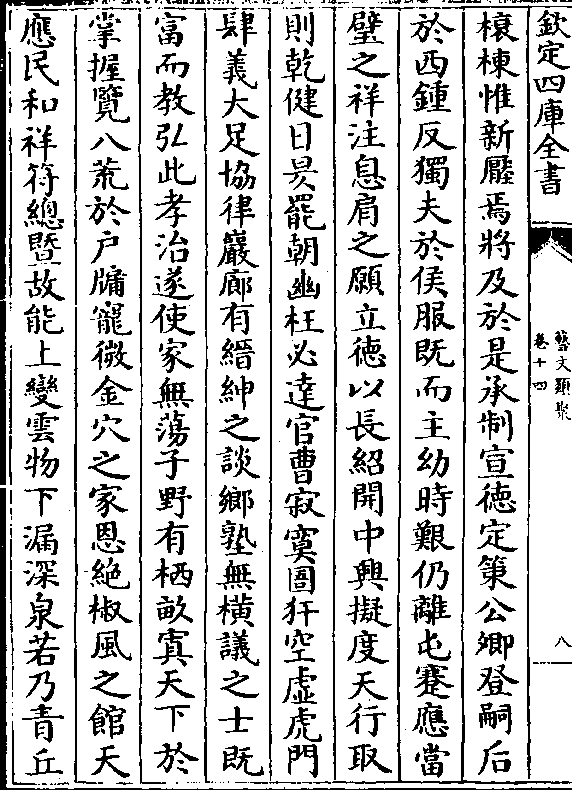 欽定四庫全書
藝文類聚
卷十四
八
榱棟惟新壓焉將及於是承制宣德定策公卿登嗣后
於西鍾反獨夫於侯服既而主幼時艱仍離屯蹇應當
璧之祥注息肩之願立德以長紹開中興擬度天行取
則乾健日昃罷朝幽枉必達官曹寂寞圄犴空虛虎門
肆義大足協律巖廊有縉紳之談鄉塾無橫議之士既
富而教弘此孝治遂使家無蕩子野有栖畝寘天下於
掌握覽八荒於戶牖寵微金穴之家恩絶椒風之館天
應民和祥符總暨故能上變雲物下漏深泉若乃青丘